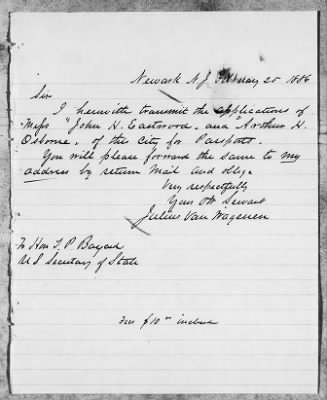 Newark N.J. February 25 1886
Sir
I herewith transmit the applications of
Messrs "John H. Eastwood, and "Arthur H.
Osborne", of this City for Passports.
You will please forward the same to my
address by return Mail and oblige
Very respectfully
Your Obt Servant
Julius Van Wagenen
To Hon T. P. Bayard
U S Secretary of State
Fees $10 00 inclosed